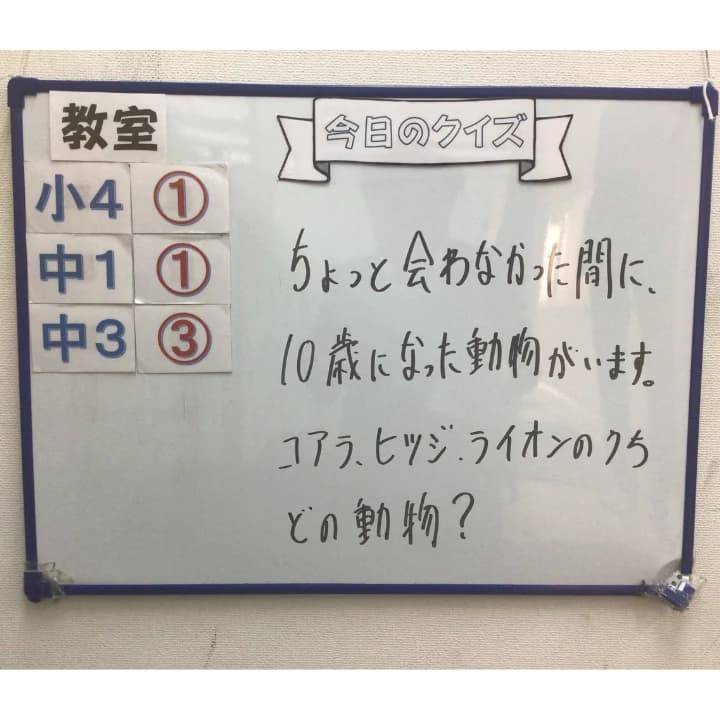 教室
今日のクイズ
小4 ①
中1 ①
中3 ③
ちょっと会わなかった間に、
10歳になった動物がいます。
コアラ、ヒツジ、ライオンのうち
どの動物?